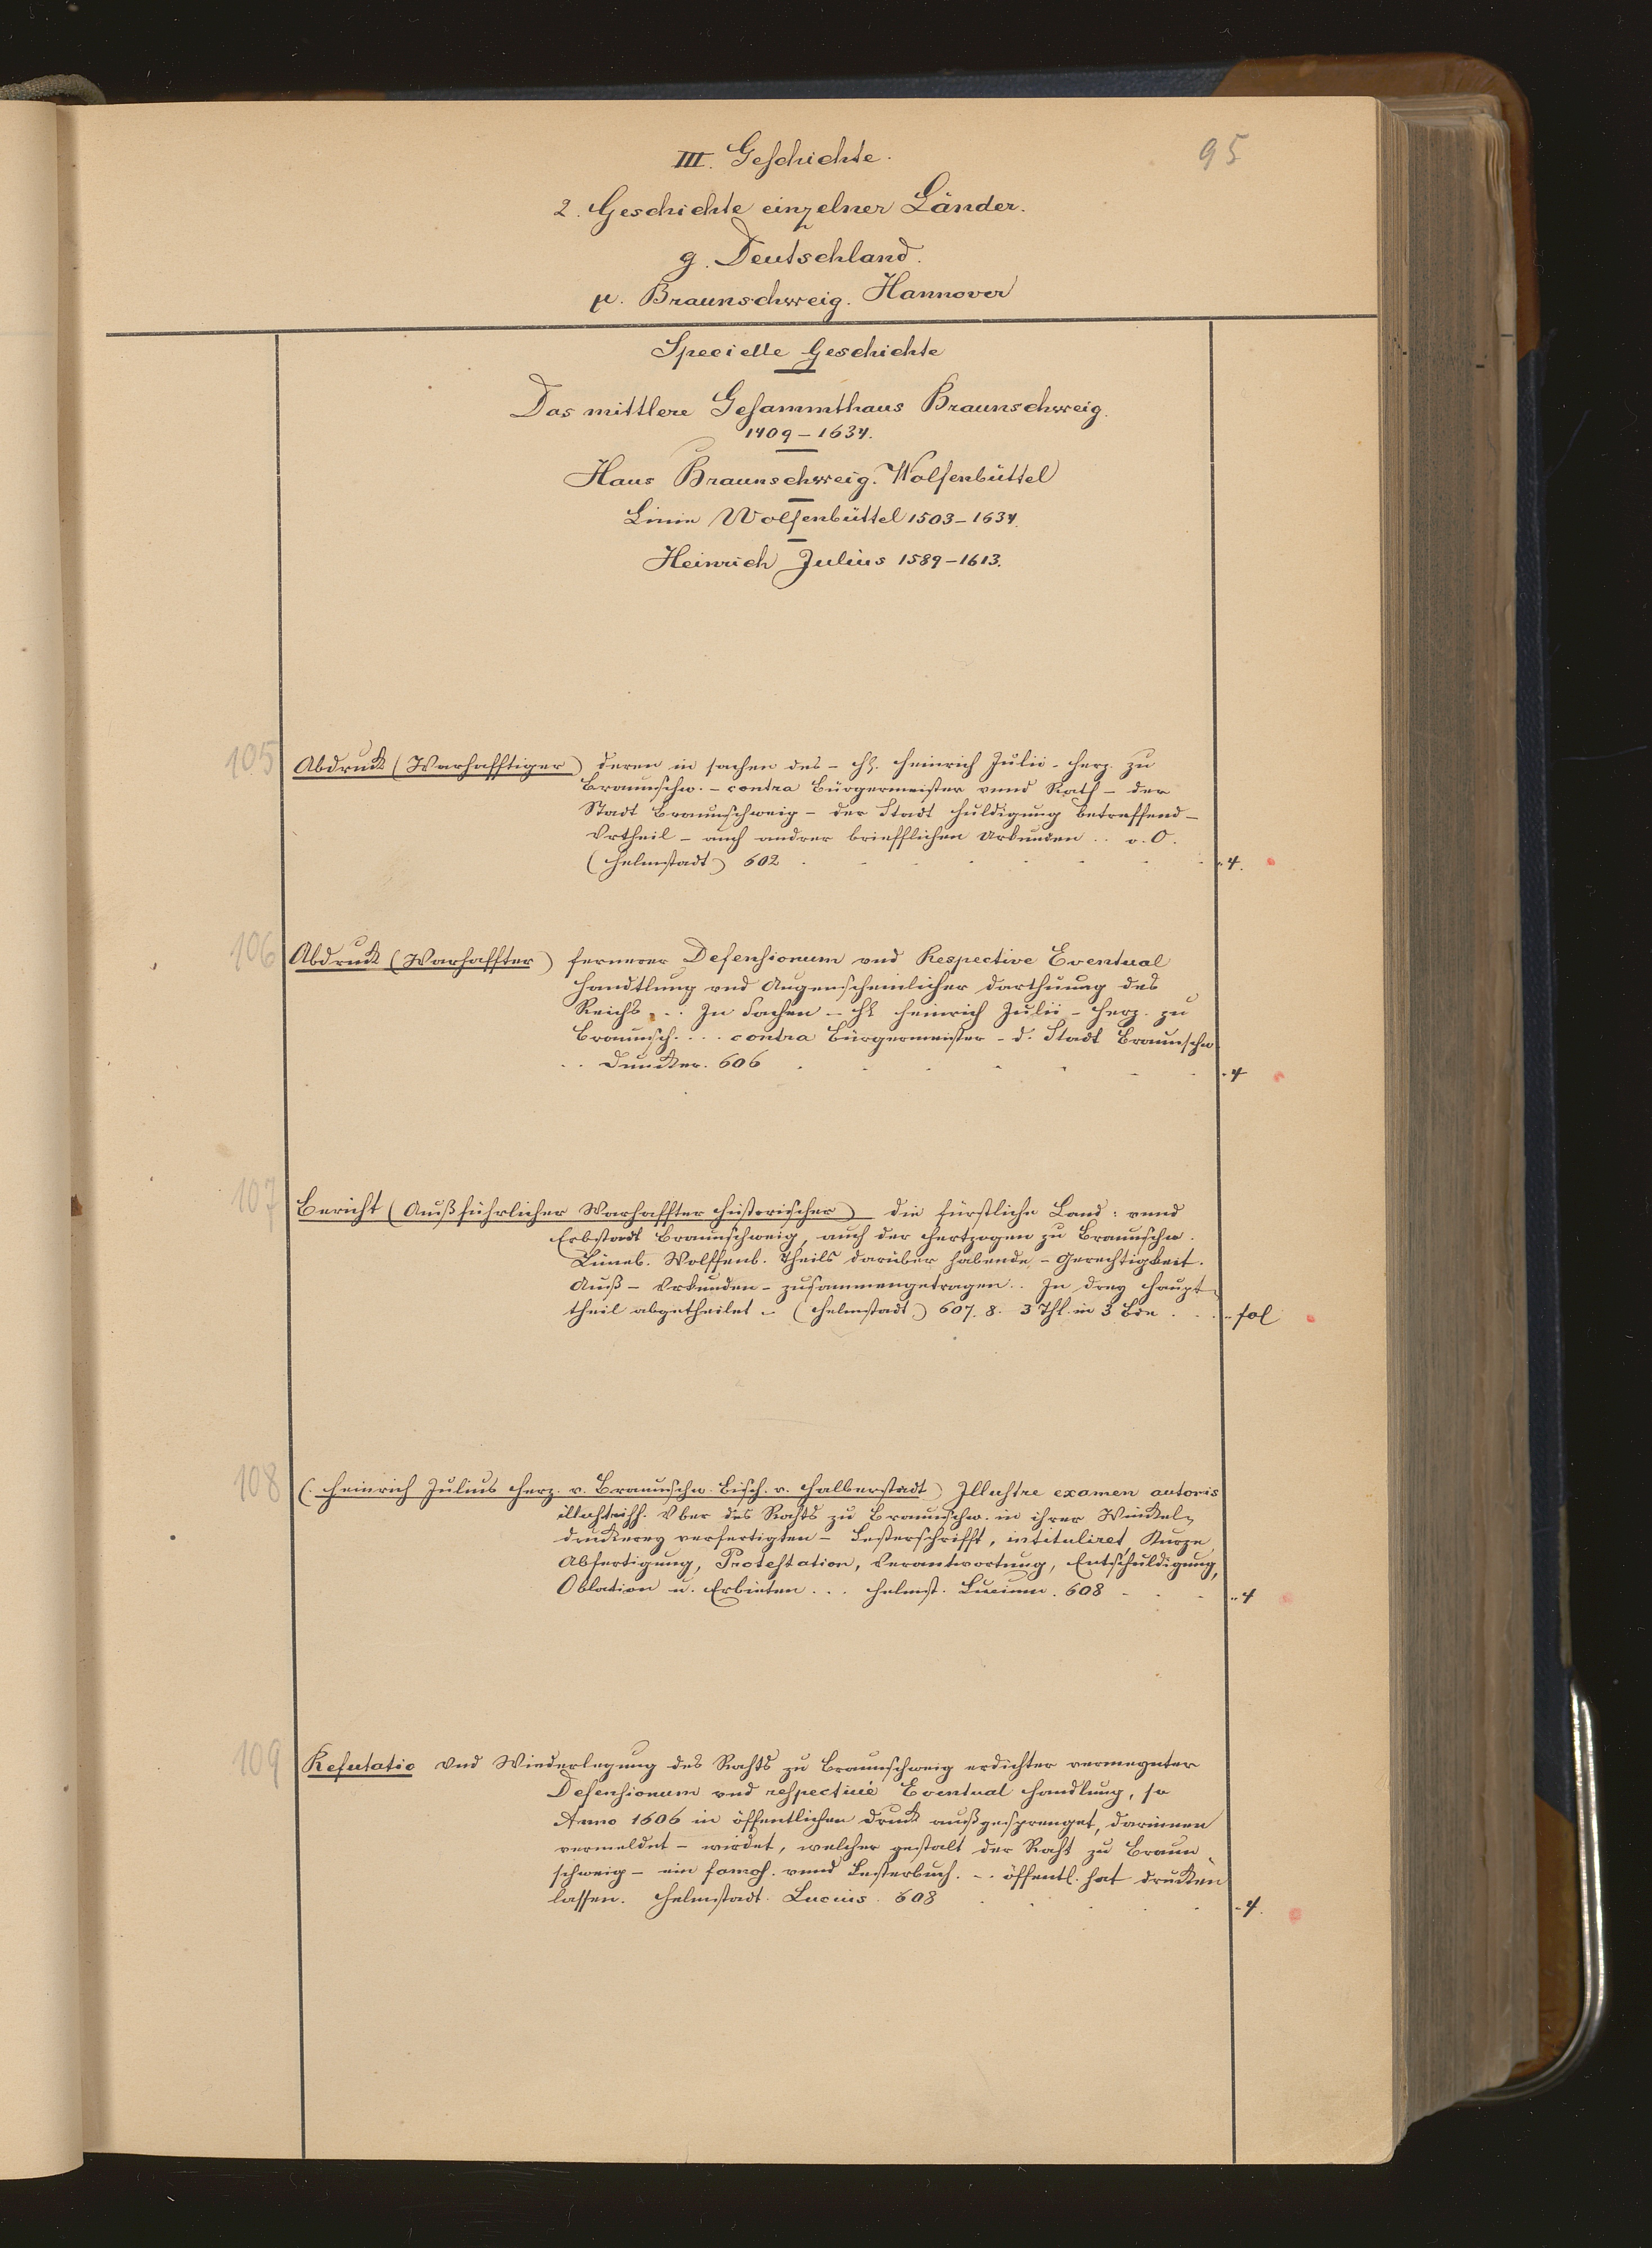 95
III. Geschichte.
2. Geschichte einzelner Länder.
g. Deutschland.
μ. Braunschweig. Hannover
Specielle Geschichte
Das mittlere Gesammthaus Braunschweig.
1409-1634.
Haus Braunschweig-Wolfenbüttel
Linie Wolfenbüttel 1503-1634.
Heinrich Julius 1589-1613.
105 Abdruck (Warhafftiger) deren in sachen des - H. Heinrich Julii - Herz. zu
Braunschw. - contra Bürgermeister vnnd Rath - der
Stadt Braunschweig - der Stadt Huldigung betreffend -
Vrtheil - auch andrer briefflichen Urkunden .. o. O.
(Helmstadt) 602 4.
106 Abdruck (Warhaffter) fernerer Defensionum vnd Respective Eventual
Handtlung vnd Augenscheinlicher darthuung des
Reichs ... In Sachen - H. Heinrich Julii - Herz. zu
Braunsch. ... contra Bürgermeister - d. Stadt Braunschw.
.. Duncker. 606 4
107 Bericht (Außführlicher Warhaffter Historischer) die fürstliche Land: vnnd
Erbstadt Braunschweig, auch der Hertzogen zu Braunschw.
Lüneb. Wolffenb. Theils darüber habende - Gerechtigkeit.
Auß - Vrkunden - zusammengetragen .. In drey Haupt-
theil abgetheilet - (Helmstadt) 607. 8. 3 Thl. in 3 Bde fol
108 (Heinrich Julius Herz. v. Braunschw. Bisch. v. Halberstadt) Illustre examen autoris
illustriss. Vber des Rahts zu Braunschw. in ihrer Winkel-
druckerey verfertigten - Lesterschrifft, intituliret, Kurze
Abfertigung, Protestation, Verantwortung, Entschuldigung,
Oblation u. Erbieten ... Helmst. Lucium. 608 4
109 Refutatio vnd Wiederlegung des Rahts zu Braunschweig erdichter vermegnter
Defensionum vnd respectiuè Eventual Handlung, so
Anno 1606 in öffentlichen Druck außgesprenget, darinnen
vermeldet - wirdet, welcher gestalt der Raht zu Braun-
schweig - ein famoß. vnnd Lesterbuch. .. öffentl. hat drucken
lassen. Helmstadt. Lucius. 608 4.